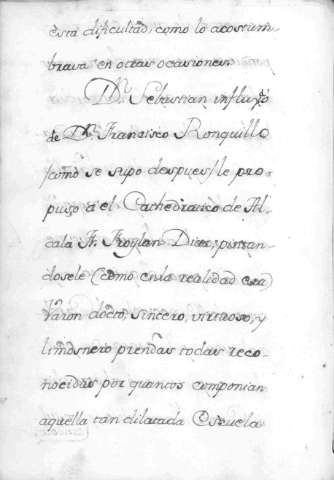 esta dificultad, como lo acostum
brava en otras ocasiones.
Dn. Sebastian influxo
de Dn. Francisco Ronquillo
(como se supo despues) le pro
puso á el Cathedratico de Al
calá Fr. Froylan Diaz, pintan
dosele (como en la realidad era)
Varon docto, sincero, virtuoso, y
limosnero prendas todas reco
nocidas por quantos componian
aquella tan dilatada Escuela